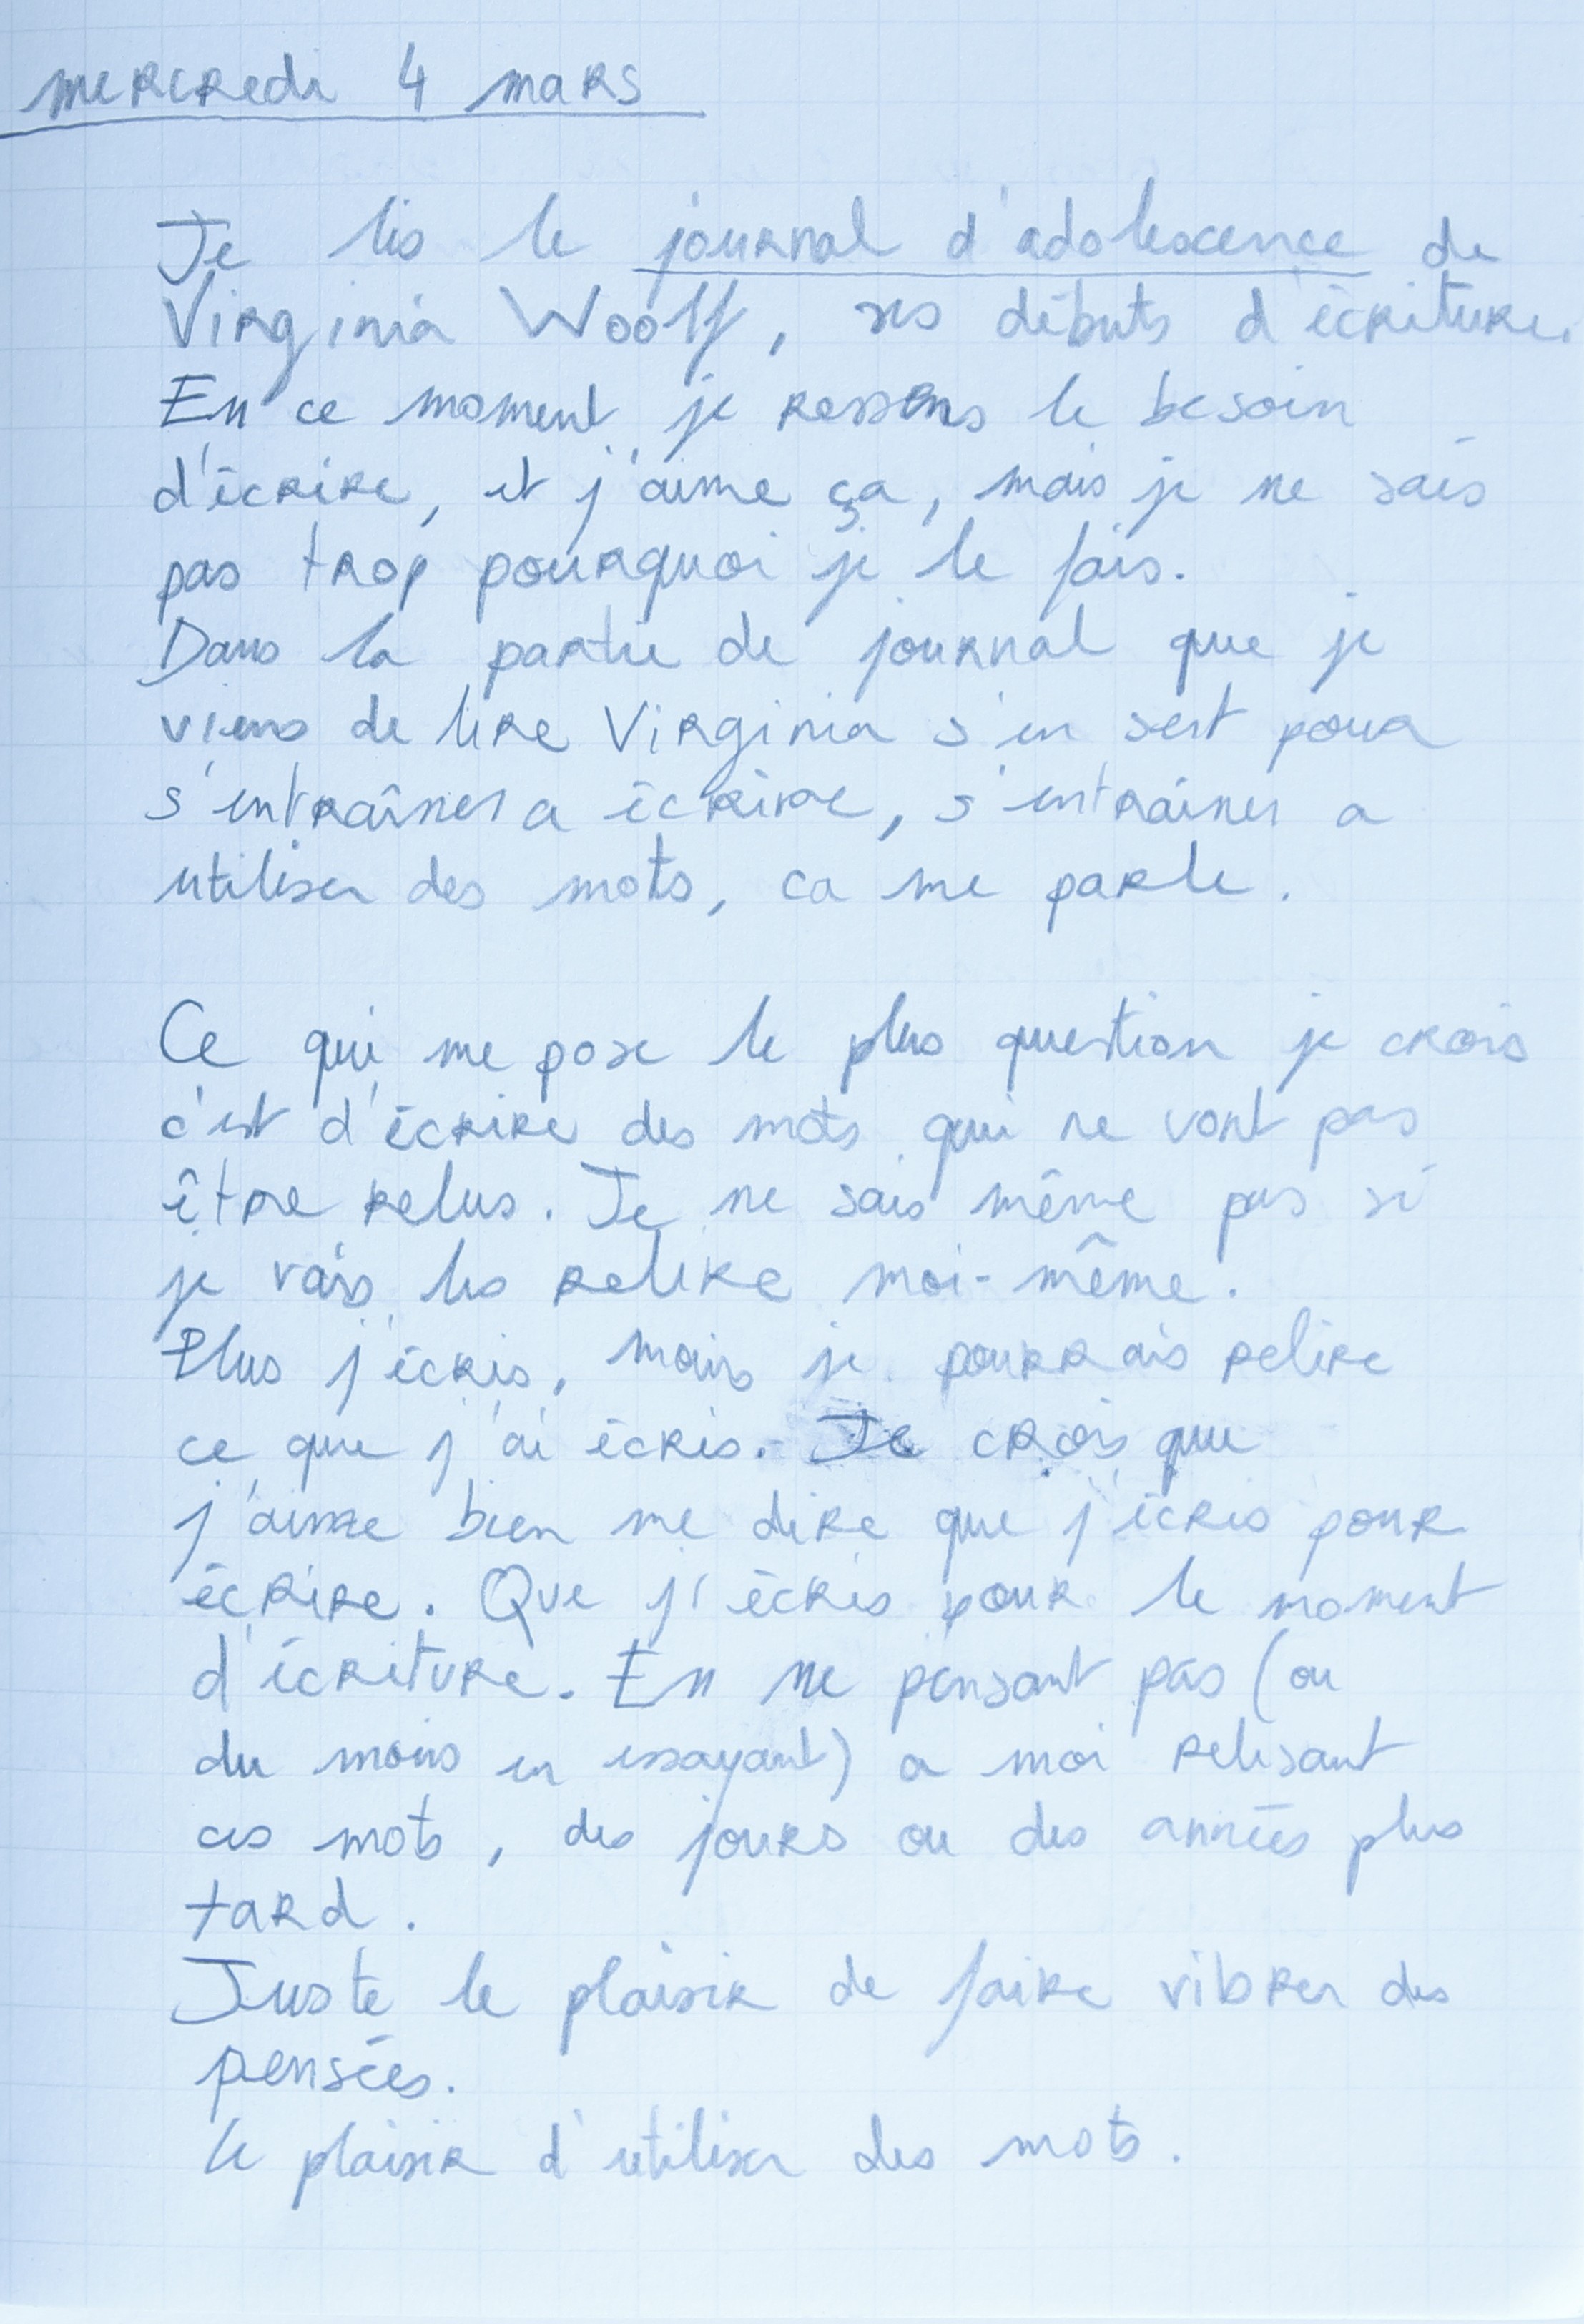 mercredi 4 mars
Je lis le journal d'adolescence de
Virginia Woolf, ses débuts d'écriture.
En ce moment je ressens le besoin
d'écrire, et j'aime ça, mais je ne sais
pas trop pourquoi je le fais.
Dans la partie de journal que je
viens de lire Virginia s'en sert pour
s'entraîner a écrire, s'entraîner a
utiliser des mots, ca me parle.
Ce qui me pose le plus question je crois
c'est d'écrire des mots qui ne vont pas
être relus. Je ne sais même pas si
je vais les relire moi-même.
Plus j'écris, mais je pourrais relire
ce que j'ai écris. Je crois que
j'aime bien me dire que j'écris pour
écrire. Que j'écris pour le moment
d'écriture. En ne pensant pas (ou
du moins en essayant) a moi relisant
ces mots, des jours ou des années plus
tard.
Juste le plaisir de faire vibrer des
pensées.
le plaisir d'utiliser des mots.